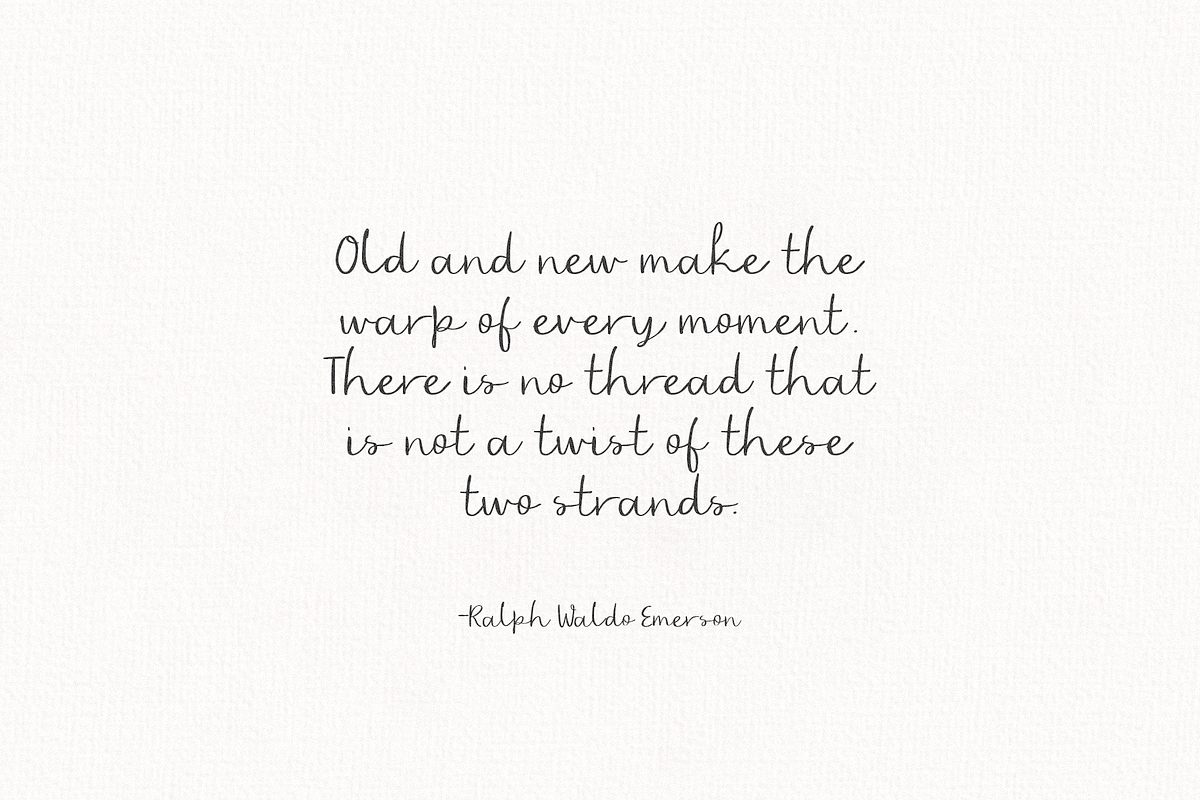 Old and new make the
warp of every moment.
There is no thread that
is not a twist of these
two strands.
-Ralph Waldo Emerson